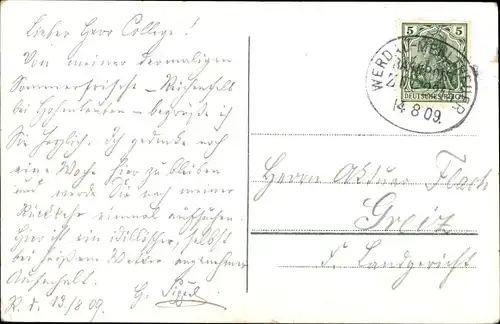 Lieber Herr College!
Von meiner dermaligen
Sommerfrische –
bei Hohenleuben – begrüße ich
Sie herzlich. Ich gedenke noch
eine Woche hier zu bleiben
und werde Sie nach meiner
Rückkehr einmal aufsuchen.
Hier ist ein idillischer, selbst
bei heißem Wetter angenehmer
Aufenthalt.
R. d. 13/8 09. G.
5 5
DEUTSCHES REICH
WERDAU-MEHLTHEUER
14 8 09.
Herrn Aktuar
Greiz
F. Landgericht